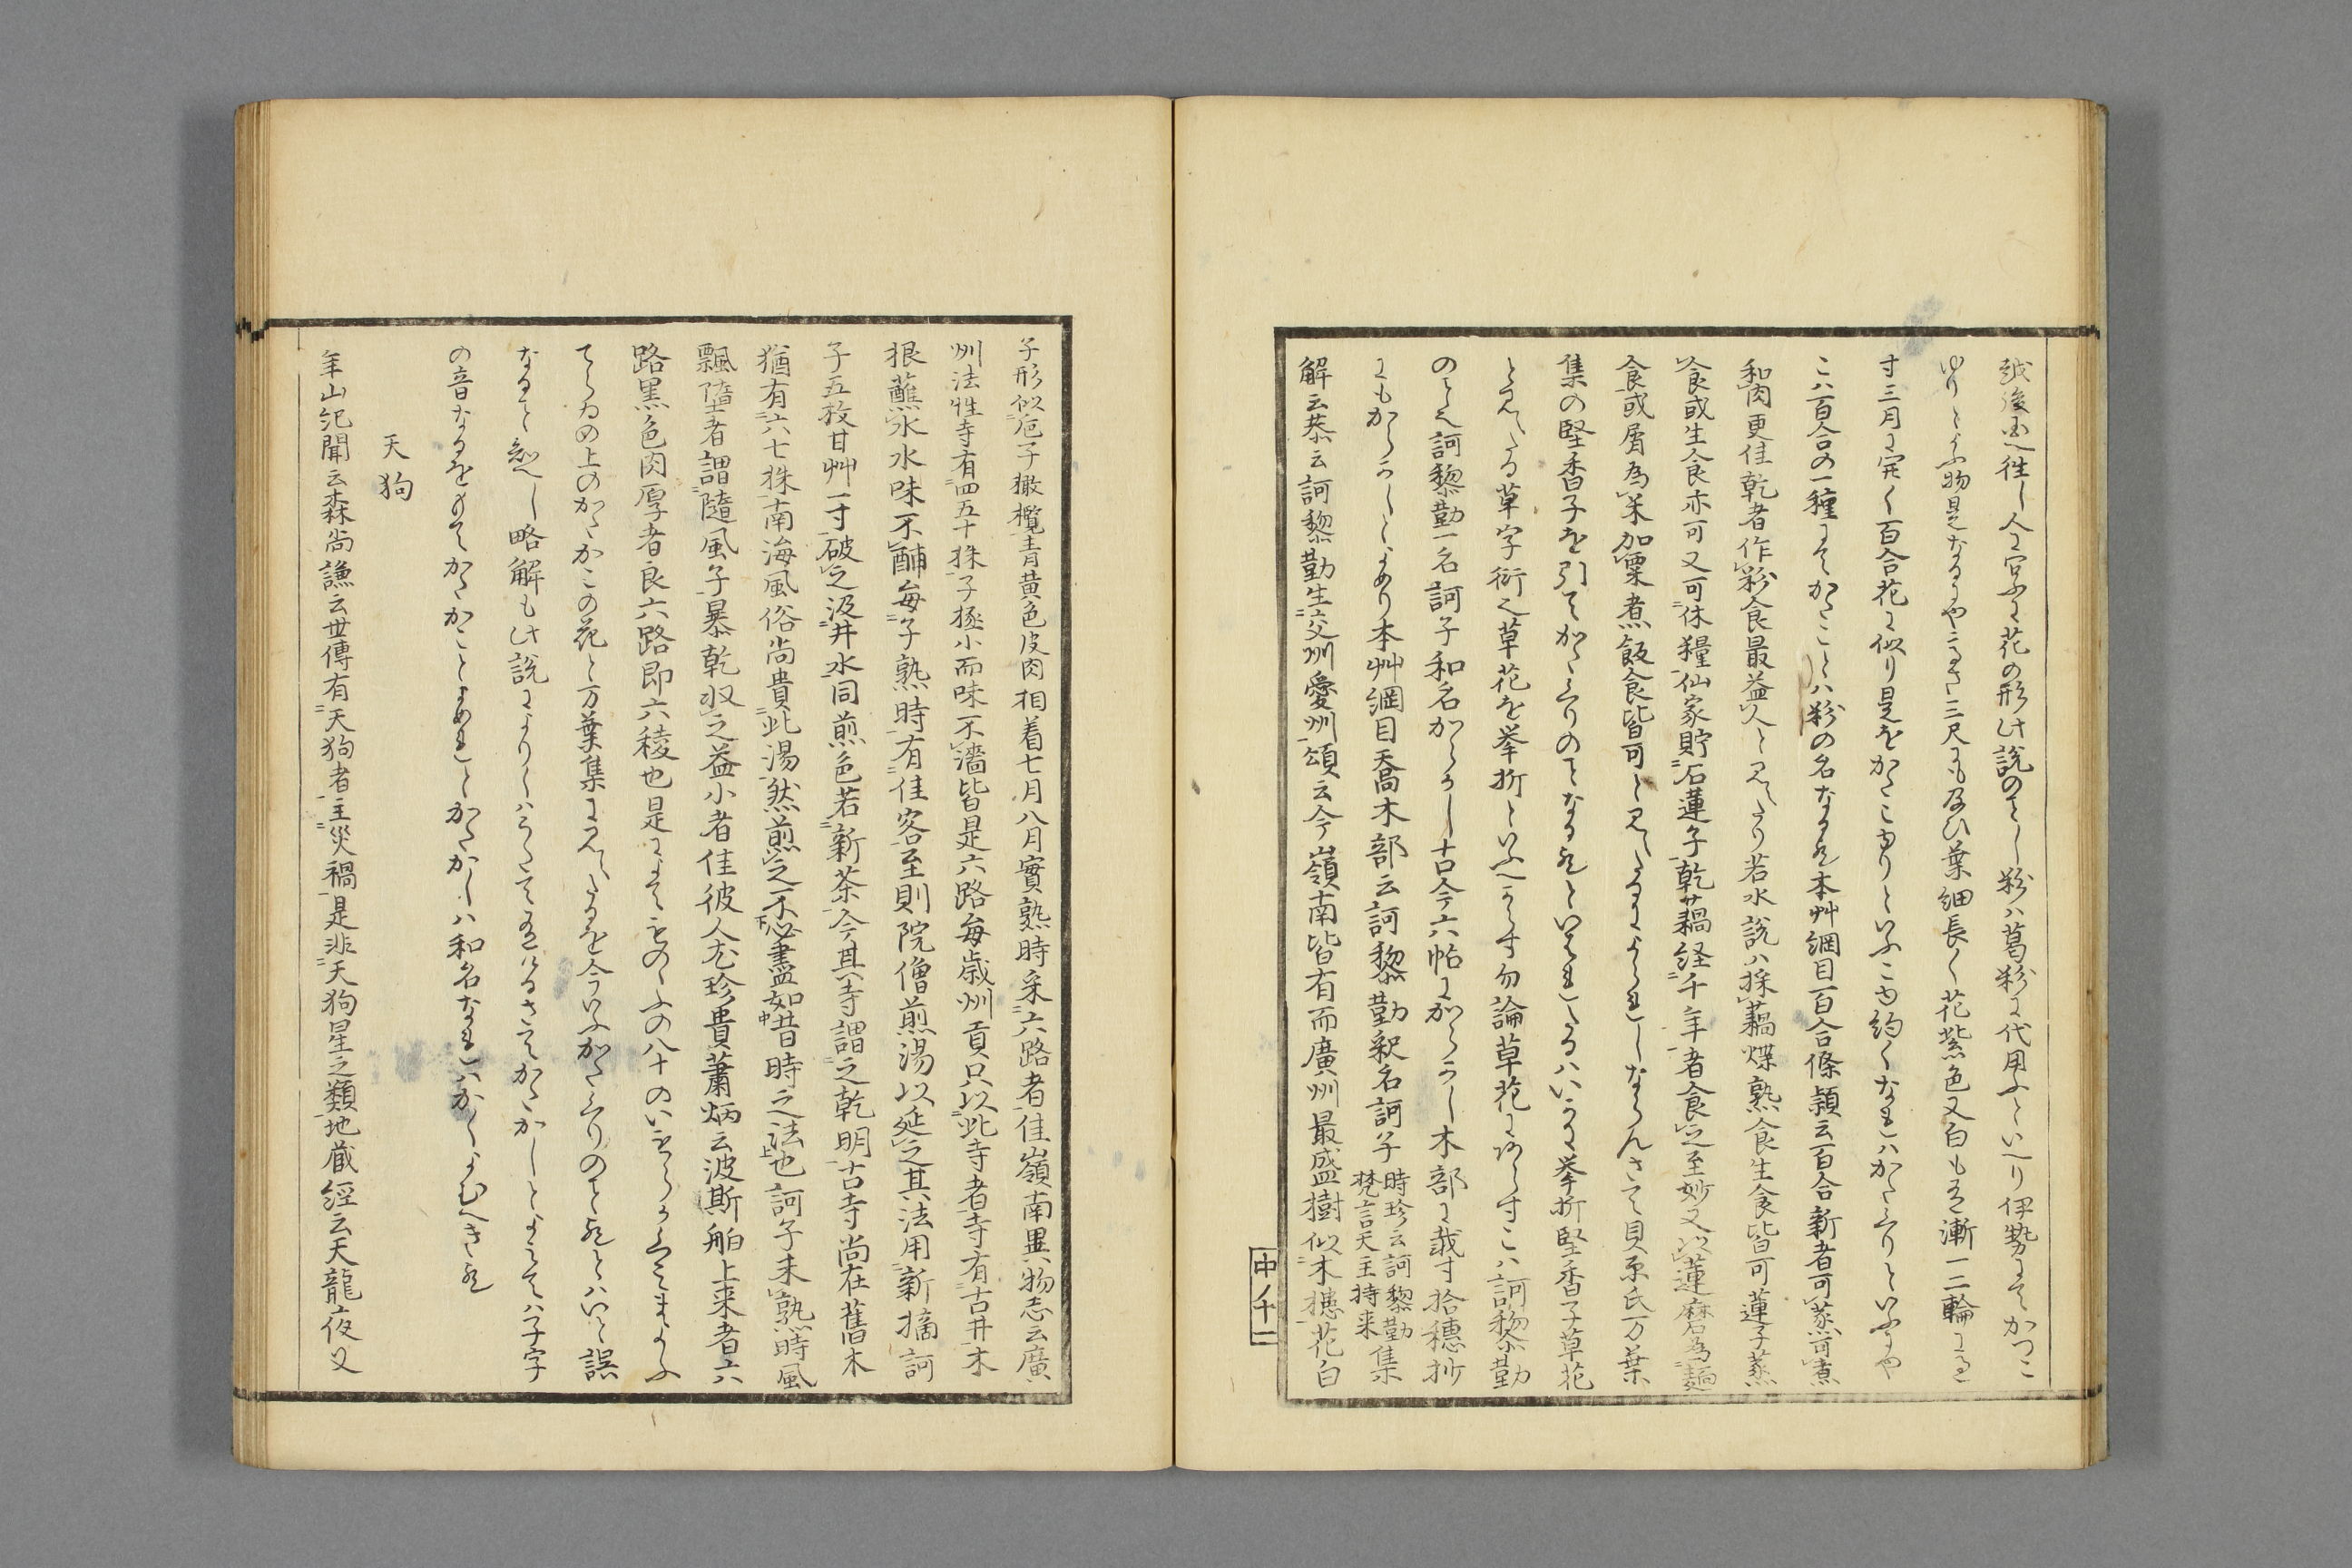 越後国へ往し人に突ふに花の形此説のことし粉は葛粉に代用ふといへり伊勢にてかつこ
ゆりといふ物是なるにや高さ三尺にも及ひ葉細長く花紫色又白も有漸一二輪にして
寸三月に実く百合花に似り是をかたこゆりといふこを約くなれはかたくりといふにや
こハ百合の一種にてかたことハ粉の名なるへし本艸綱目百合條頴云百合新者可蒸可煮
和肉更佳乾者作粉食最益人と見えたり若水説ハ採藕煠熟食生食皆可蓮子蒸
食或生食亦可又可休糧仙家貯石蓮子乾藕経千年者食之至妙又以蓮磨為麺
食或屑為米加粟煮飯食皆可と見えたるによられしならんさて貝原氏万葉
集の堅香子を引てかたくりのことなるへしといはれたるハいかに挙折堅香子草花
と見えたる草字衍之草花を挙折といふへからす勿論草花にあらすこハ訶黎勒
のこと也訶黎勒一名訶子和名からかし古今六帖にからかし木部に載す拾穂抄
にもからかしとよめり本艸綱目喬木部云訶黎勒釈名訶子時珍云訶黎勒梵言天主持来集
解云恭云訶黎勒生交州愛州頌云今嶺南皆有而廣州最盛樹似木槵花白
中ノ十二
子形似巵子橄欖青黄色皮肉相着七月八月實熟時采六路者佳嶺南異物志云廣
州法性寺有四五十株子極小而味不濇皆是六路毎歳州貢只以此寺者寺有古井木
根蘸水水味不鹹毎子熟時有佳客至則院僧煎湯以延之其法用新摘訶
子五枚甘艸一寸破之汲井水同煎色若新茶今其寺謂之乾明古寺尚在舊木
猶有六七株南海風俗尚貴此湯然煎之不必盡如昔時之法也訶子未熟時風
飄墮者謂隨風子暴乾収之益小者佳彼人尤珍貴蕭炳云波斯舶上来者六
路黒色肉厚者良六路即六稜也是によてものゝふの八十のいもらかくみまよふ
てらゐの上のかたかこの花と万葉集に見えたるを今いふかたくりのことゝハいと誤
なること知へし略解も此説によりしハうたて有けるさてかたかしとよみてハ子字
の音なるをもてかたかことよめれとかたかしハ和名なれハかくよむへき也
天狗
年山紀聞云森尚謙云世傳有天狗者主災禍是非天狗星之類地蔵經云天龍夜叉